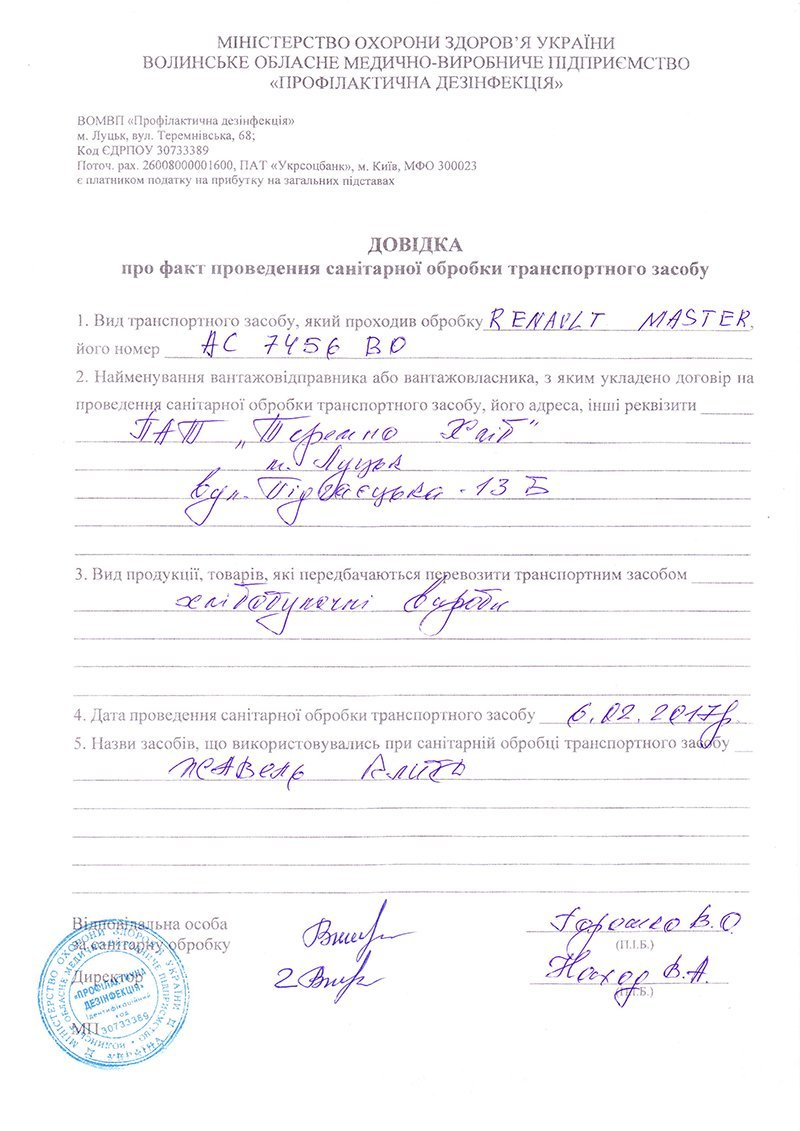 МІНІСТЕРСТВО ОХОРОНИ ЗДОРОВ’Я УКРАЇНИ
ВОЛИНСЬКЕ ОБЛАСНЕ МЕДИЧНО-ВИРОБНИЧЕ ПІДПРИЄМСТВО
«ПРОФІЛАКТИЧНА ДЕЗІНФЕКЦІЯ»
ВОМВП «Профілактична дезінфекція»
м. Луцьк, вул. Теремнівська, 68;
Код ЄДРПОУ 30733389
Поточ. рах. 26008000001600, ПАТ «Укрсоцбанк», м. Київ, МФО 300023
є платником податку на прибутку на загальних підставах
ДОВІДКА
про факт проведення санітарної обробки транспортного засобу
1. Вид транспортного засобу, який проходив обробку RENAULT MASTER,
його номер АС 7456 ВО
2. Найменування вантажовідправника або вантажовласника, з яким укладено договір на
проведення санітарної обробки транспортного засобу, його адреса, інші реквізити
ПАП „Теремно Хліб"
м. Луцьк
вул. Підгаєцька - 13 Б
3. Вид продукції, товарів, які передбачаються перевозити транспортним засобом
хлібобулочні вироби
4. Дата проведення санітарної обробки транспортного засобу 6.02.2017р.
5. Назви засобів, що використовувались при санітарній обробці транспортного засобу
ЖАВЕЛЬ
Відповідальна особа
за санітарну обробку
Горошко В.О.
(П.І.Б.)
Директор
В.А.
(П.І.Б.)
МП
МІНІСТЕРСТВО ОХОРОНИ ЗДОРОВ'Я УКРАЇНИ
«ПРОФІЛАКТИЧНА
ДЕЗІНФЕКЦІЯ»
Ідентифікаційний
код
30733389